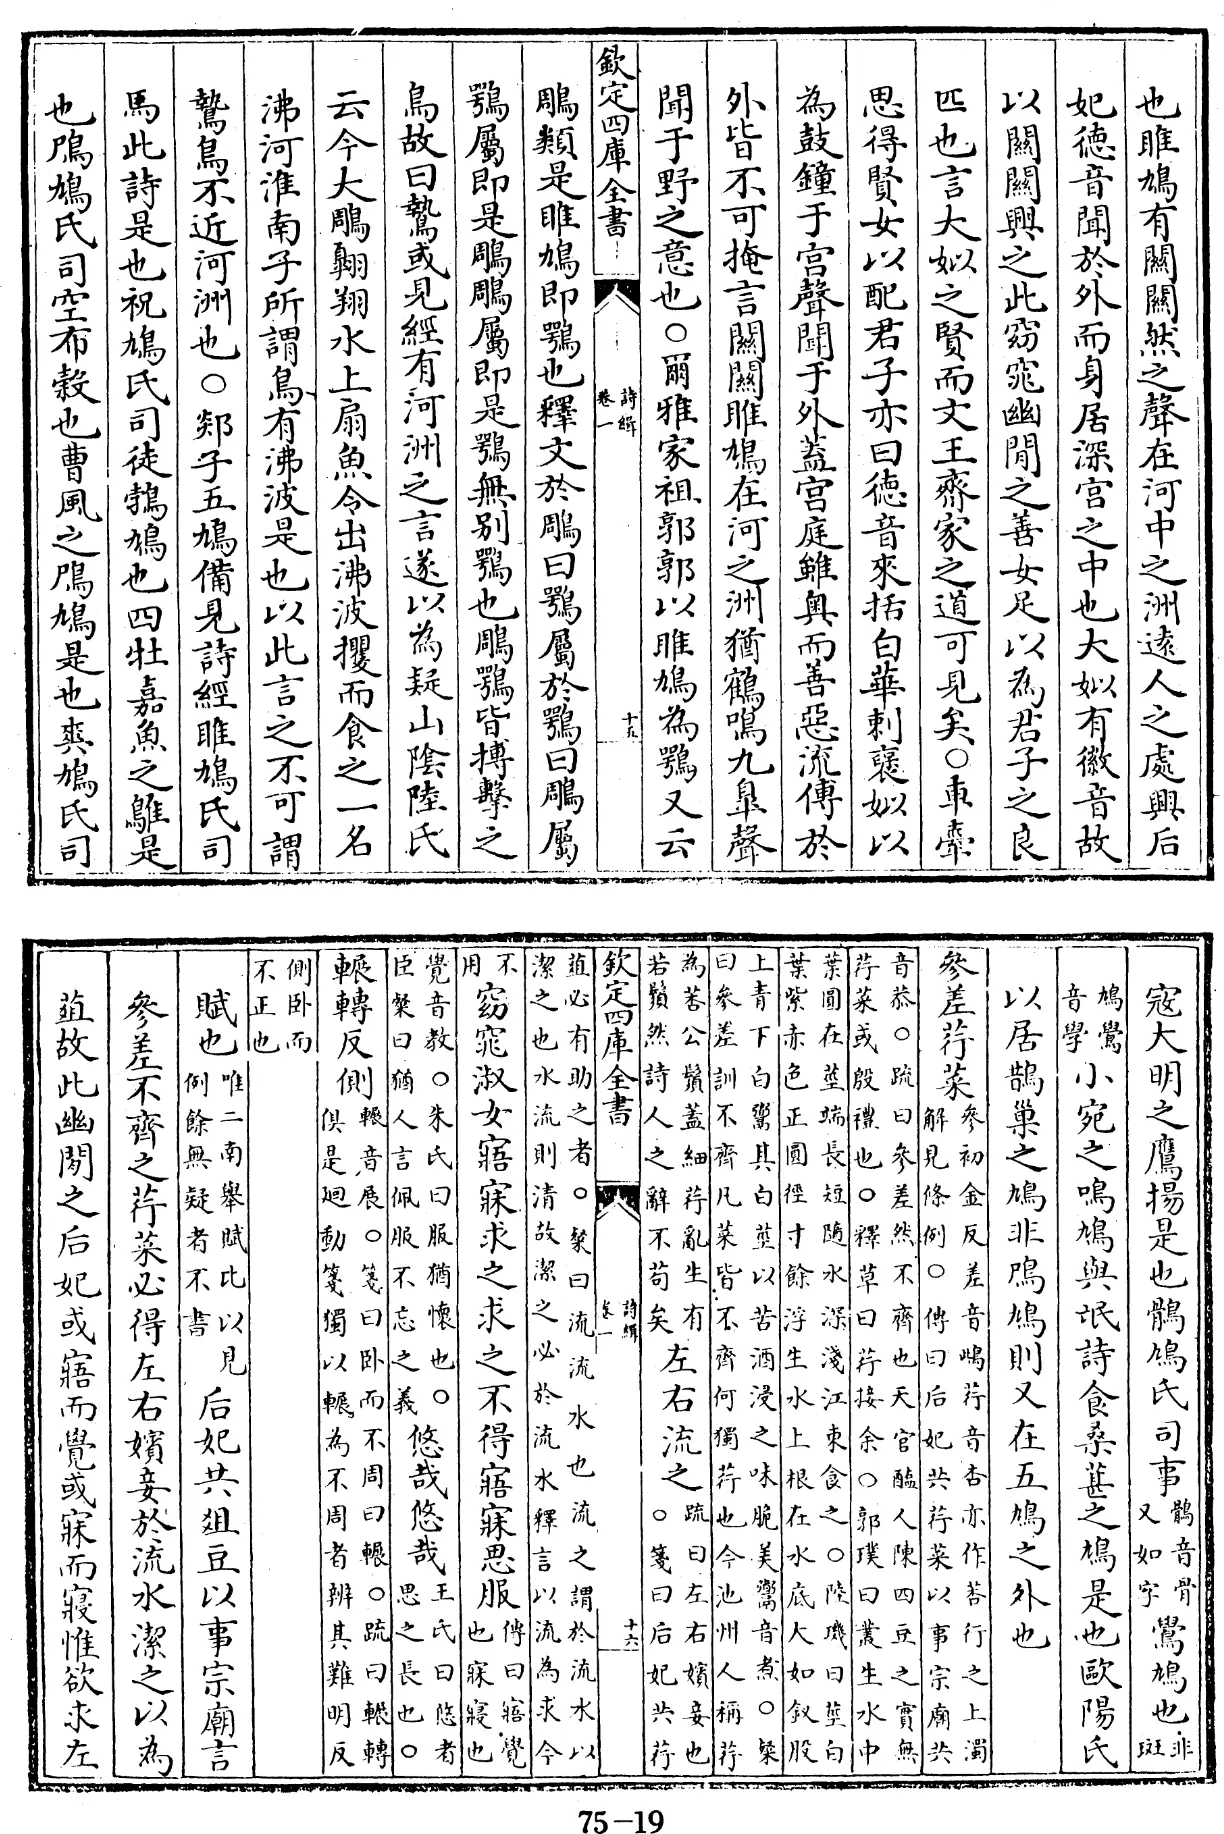 也雎鳩有關關然之聲在河中之洲逺人之處興后
妃徳音聞於外而身居深宫之中也大姒有徽音故
以關關興之此窈窕幽閒之善女足以為君子之良
匹也言大姒之賢而文王齋家之道可見矣○車舝
思得賢女以配君子亦曰徳音來括白華刺褒姒以
為鼓鐘于宫聲聞于外蓋宫庭雖奥而善惡流傳於
外皆不可掩言關關雎鳩在河之洲猶鶴鳴九臯聲
聞于野之意也○爾雅家祖郭郭以雎鳩為鶚又云
欽定四庫全書
詩緝
卷一
十五
鵰類是雎鳩即鶚也釋文於鵰曰鶚屬於鶚曰鵰屬
鶚屬即是鵰鵰屬即是鶚無别鶚也鵰鶚皆搏擊之
鳥故曰鷙或見經有河洲之言遂以為疑山隂陸氏
云今大鵰翺翔水上扇魚令出沸波攫而食之一名
沸河淮南子所謂鳥有沸波是也以此言之不可謂
鷙鳥不近河洲也○郯子五鳩備見詩經雎鳩氏司
馬此詩是也祝鳩氏司徒鵓鳩也四牡嘉魚之鵻是
也鳲鳩氏司空布糓也曹風之鳲鳩是也爽鳩氏司
寇大明之鷹揚是也鶻鳩氏司事鶻音骨又如字鷽鳩也非斑
鳩鷽音學小宛之鳴鳩與氓詩食桑葚之鳩是也歐陽氏
以居鵲巢之鳩非鳲鳩則又在五鳩之外也
參差荇菜參初金反差音嵯荇音杏亦作莕行之上濁解見條例○傳曰后妃共荇菜以事宗廟共
音恭○疏曰參差然不齊也天官醢人陳四豆之實無荇菜或殷禮也○釋草曰荇接余○郭璞曰叢生水中
葉圓在莖端長短隨水深淺江東食之○陸璣曰莖白葉紫赤色正圓徑寸餘浮生水上根在水底大如釵股
上青下白鬻其白莖以苦酒浸之味脆美鬻音煮○粲曰參差訓不齊凡菜皆不齊何獨荇也今池州人稱荇
為莕公鬚蓋細荇亂生有若鬚然詩人之辭不苟矣左右流之疏曰左右嬪妾也○箋曰后妃共荇
欽定四庫全書
詩緝
卷一
十六
菹必有助之者○粲曰流流水也流之謂於流水以潔之也水流則清故潔之必於流水釋言以流為求今
不用窈窕淑女寤寐求之求之不得寤寐思服傳曰寤覺也寐寢也
覺音教○朱氏曰服猶懷也○臣粲曰猶人言佩服不忘之義悠哉悠哉王氏曰悠者思之長也○
輾轉反側輾音展○箋曰卧而不周曰輾○疏曰輾轉俱是廻動箋獨以輾為不周者辨其難明反
側卧而不正也
賦也唯二南舉賦比以見例餘無疑者不書后妃共俎豆以事宗廟言
參差不齊之荇菜必得左右嬪妾於流水潔之以為
菹故此幽閒之后妃或寤而覺或寐而寢惟欲求左
75-19